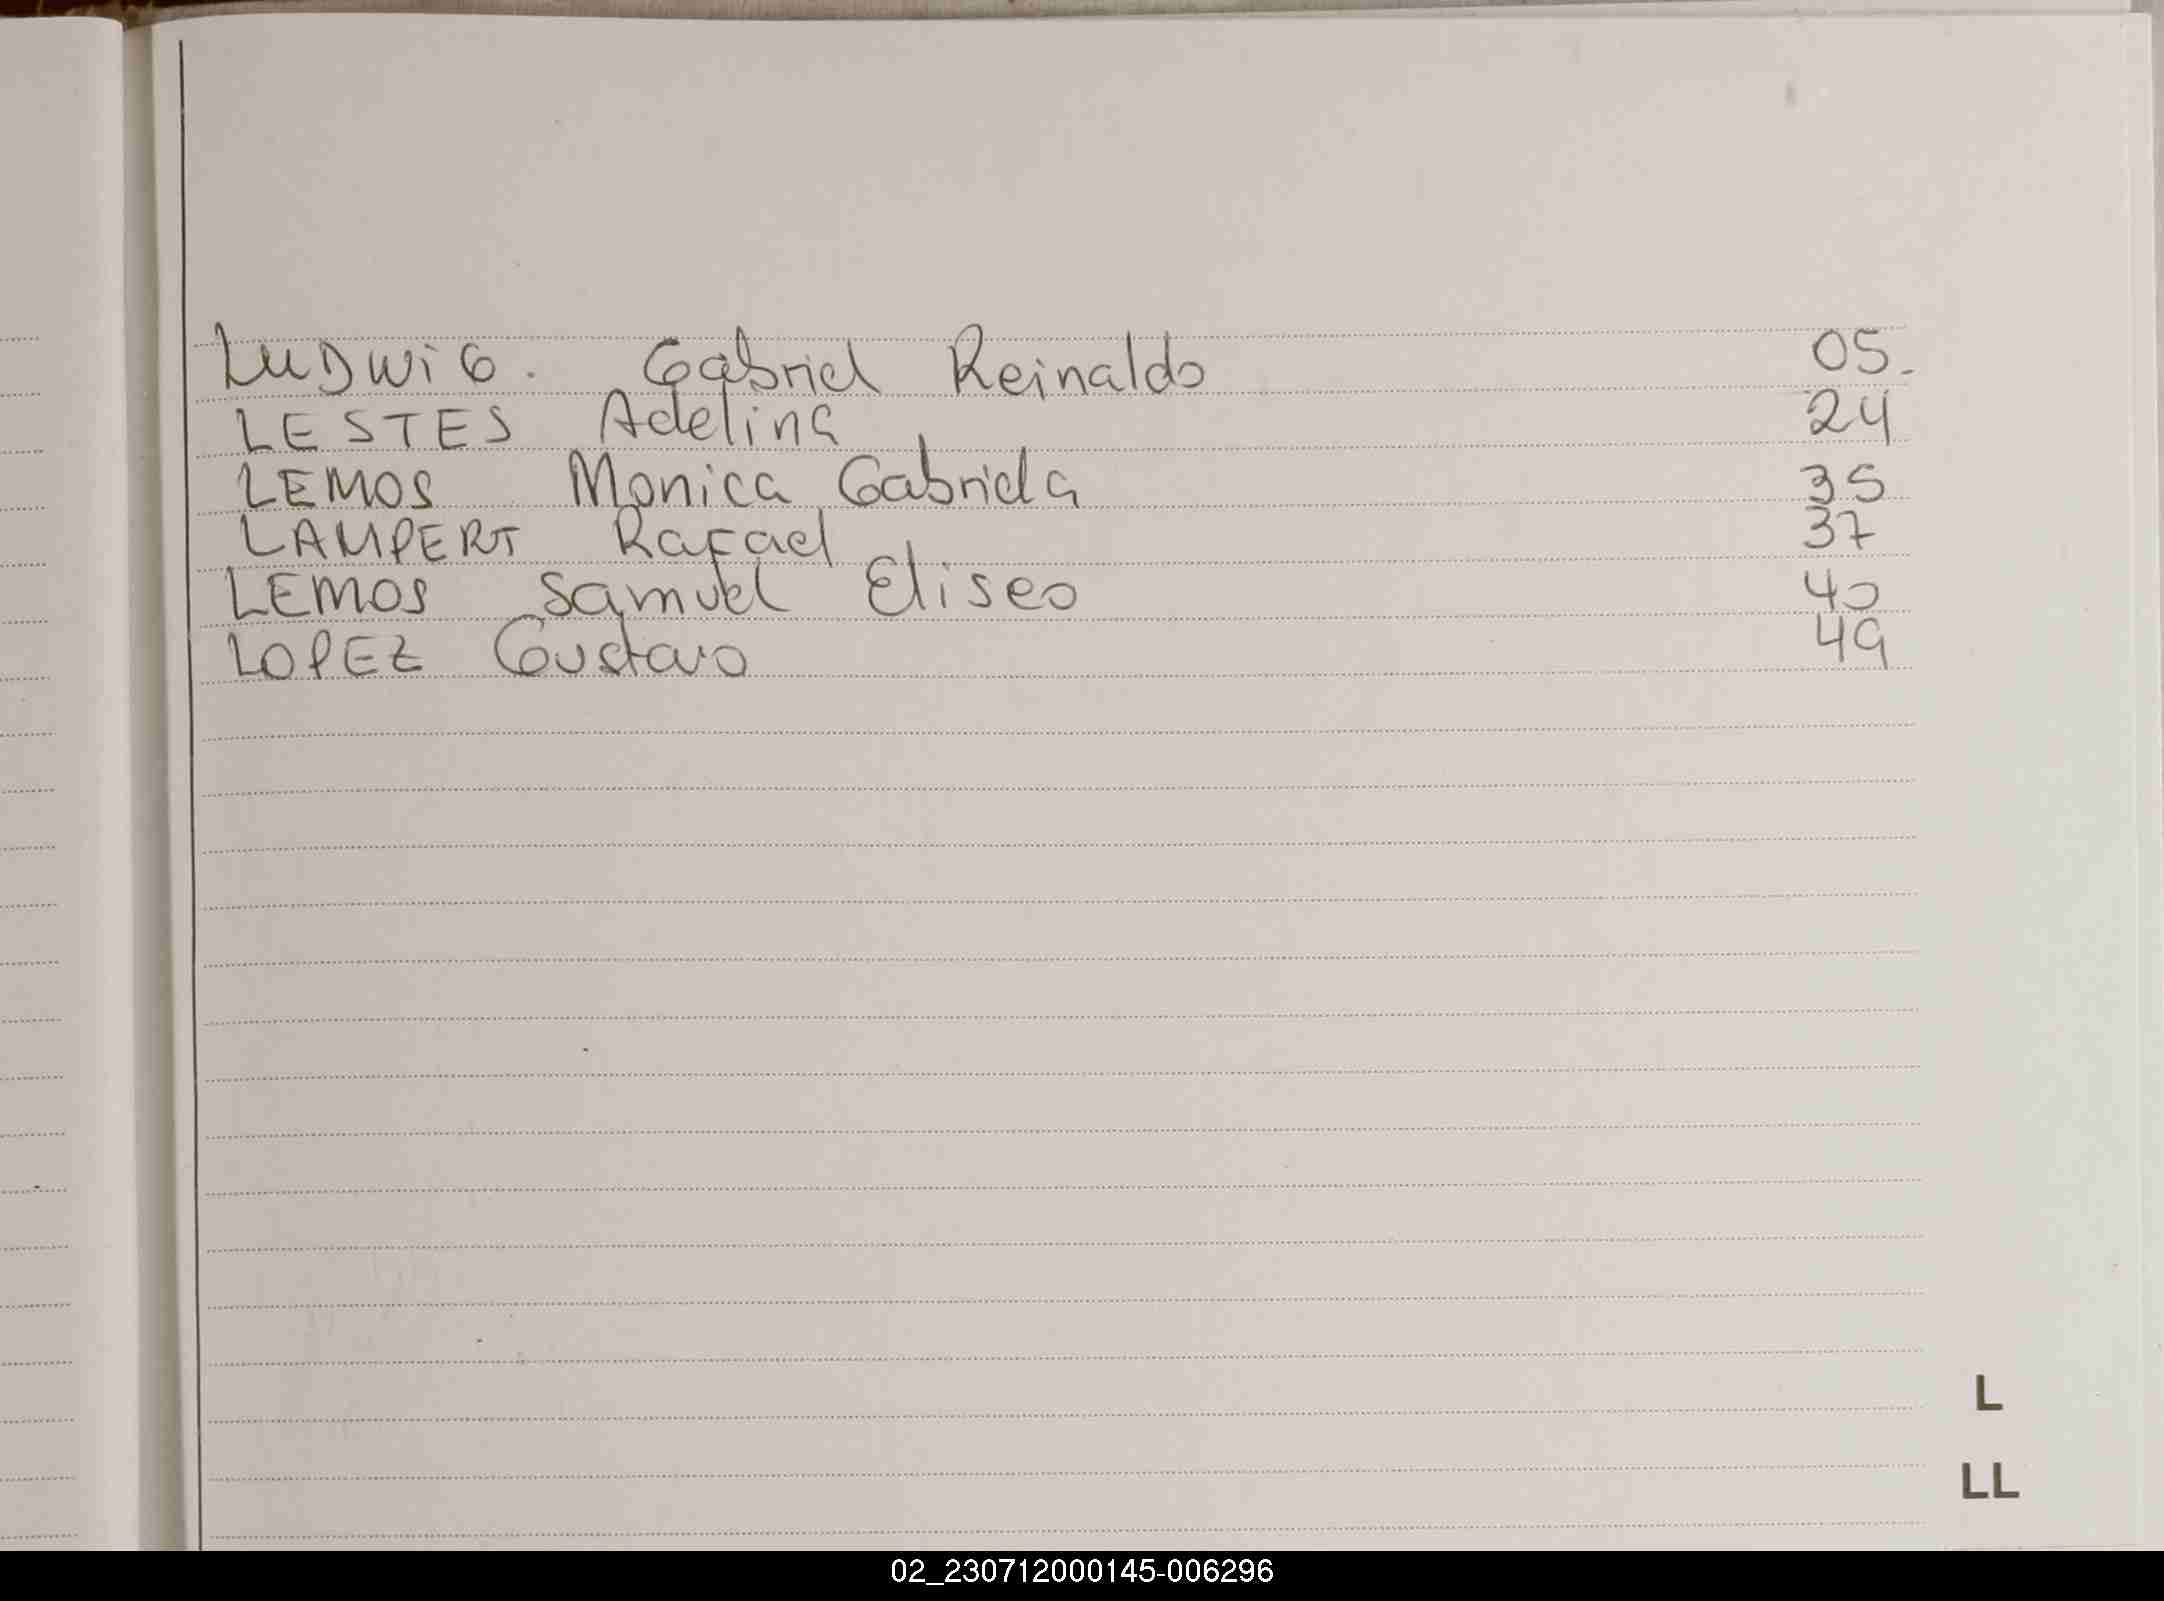 LUDWiG. Gabriel Reinaldo 05.
LESTES Adelina 24
LEMOS Monica Gabriela 35
LAMPERT Rafael 37
LEMOS Samuel Eliseo 40
LOPEZ Gustavo 49
L
LL
02_230712000145-006296